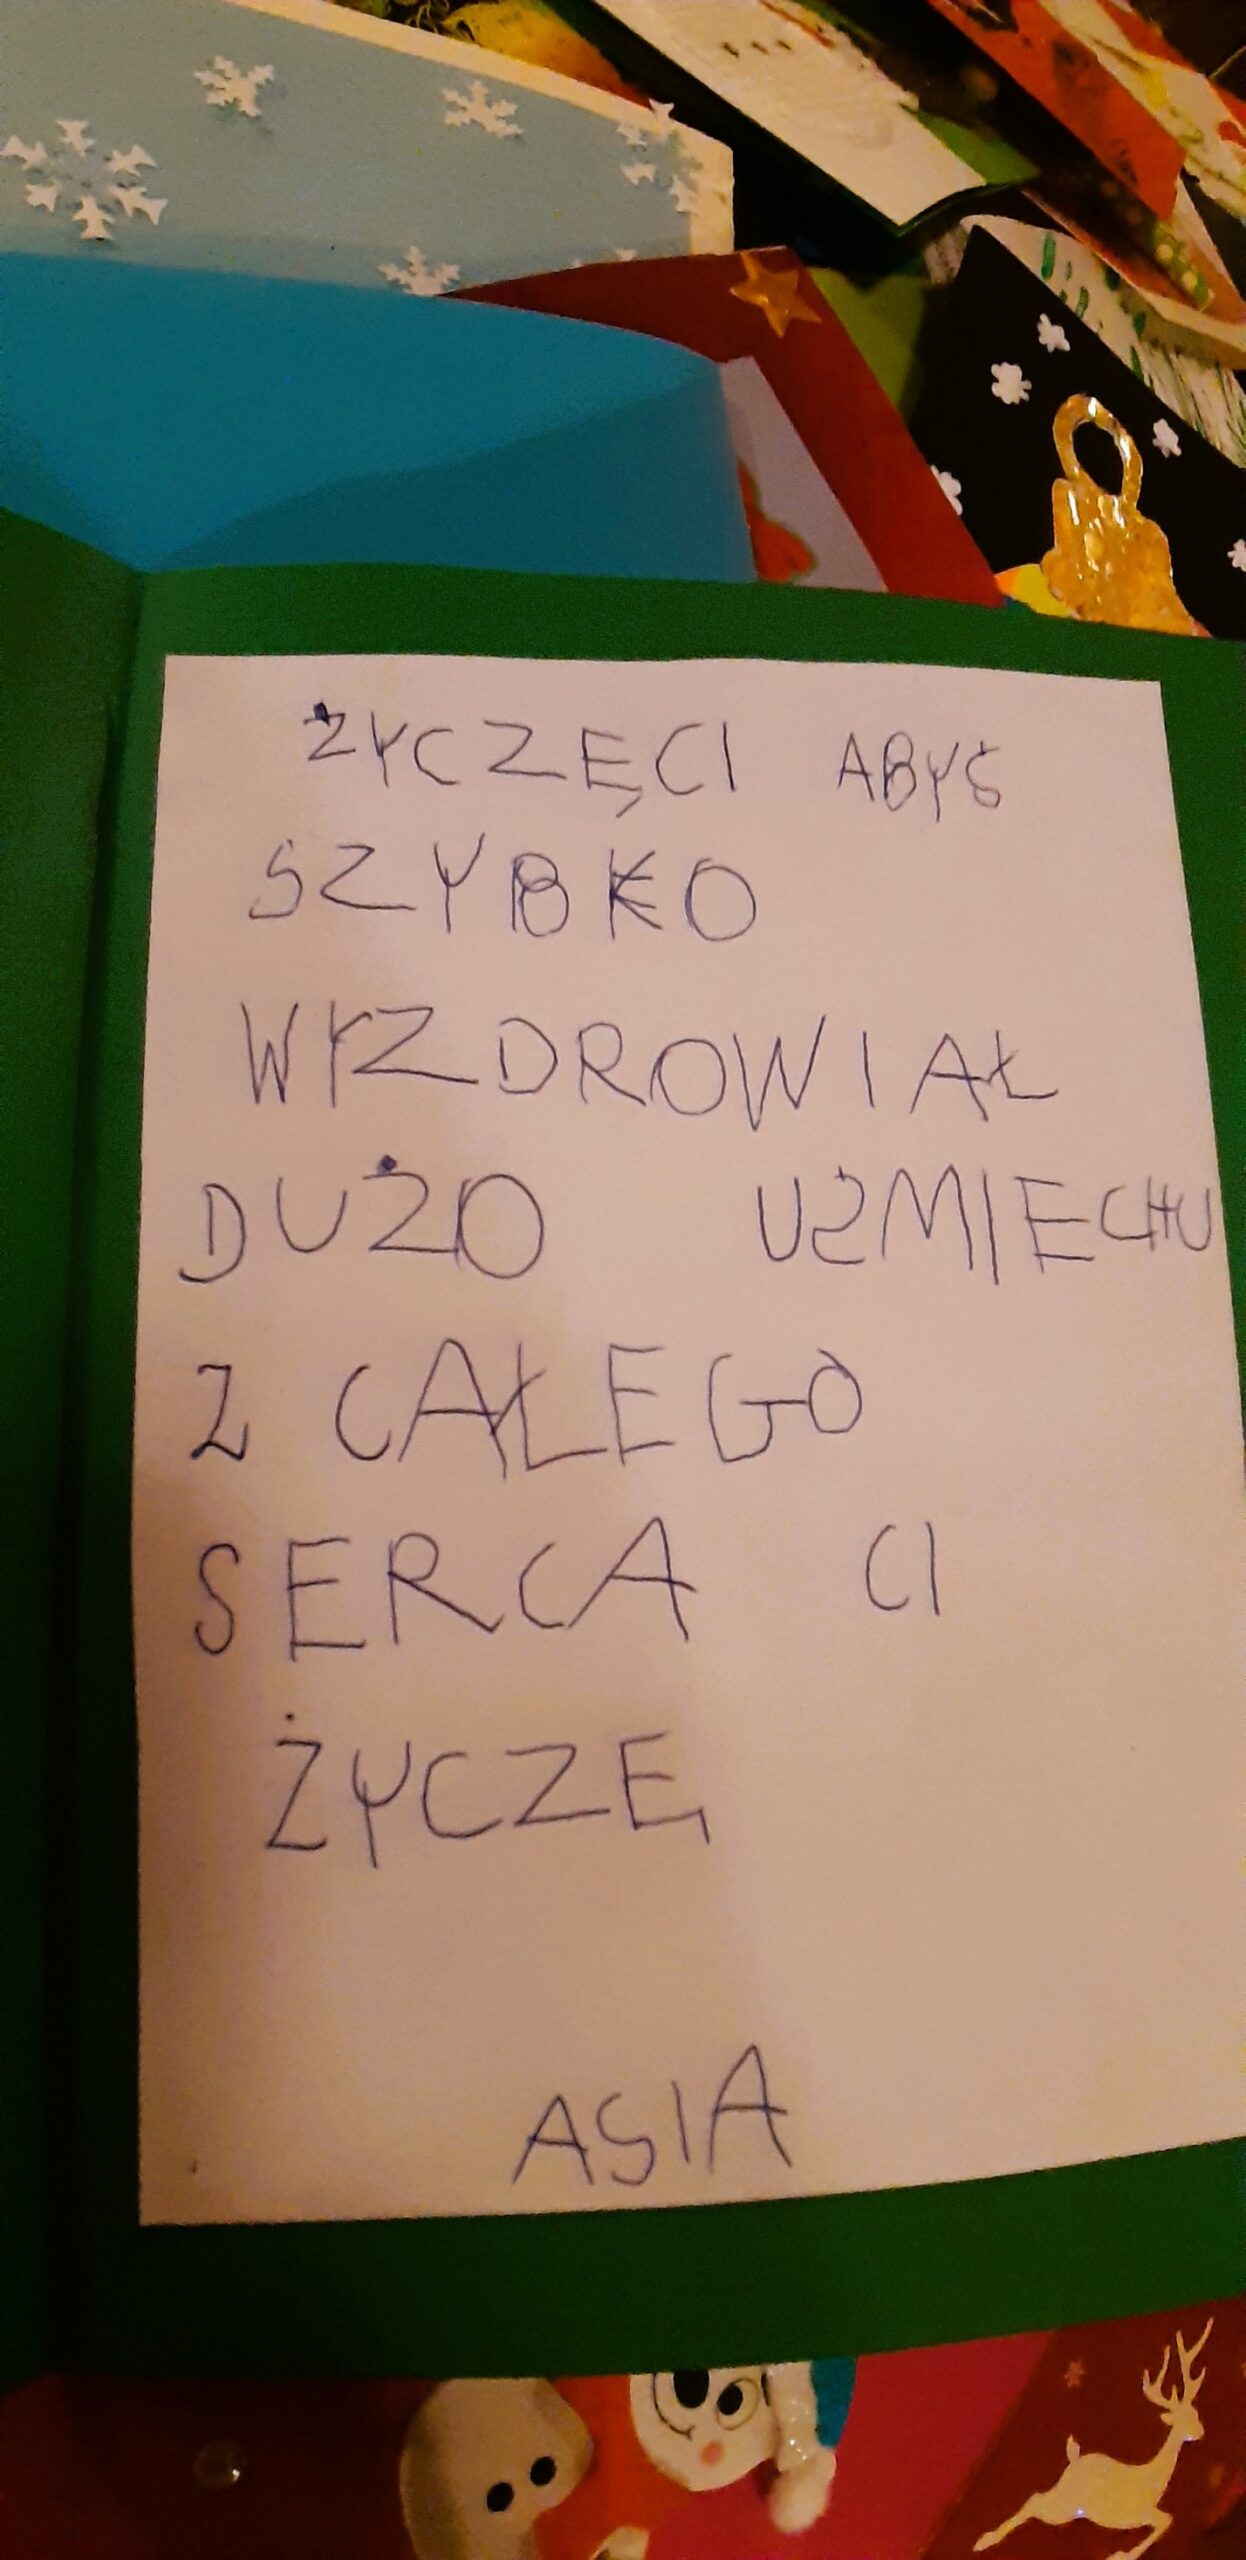 ŻYCZĘCI ABYŚ
SZYBKO
WYZDROWIAŁ
DUŻO UŚMIECHU
Z CAŁEGO
SERCA CI
ŻYCZĘ
ASIA